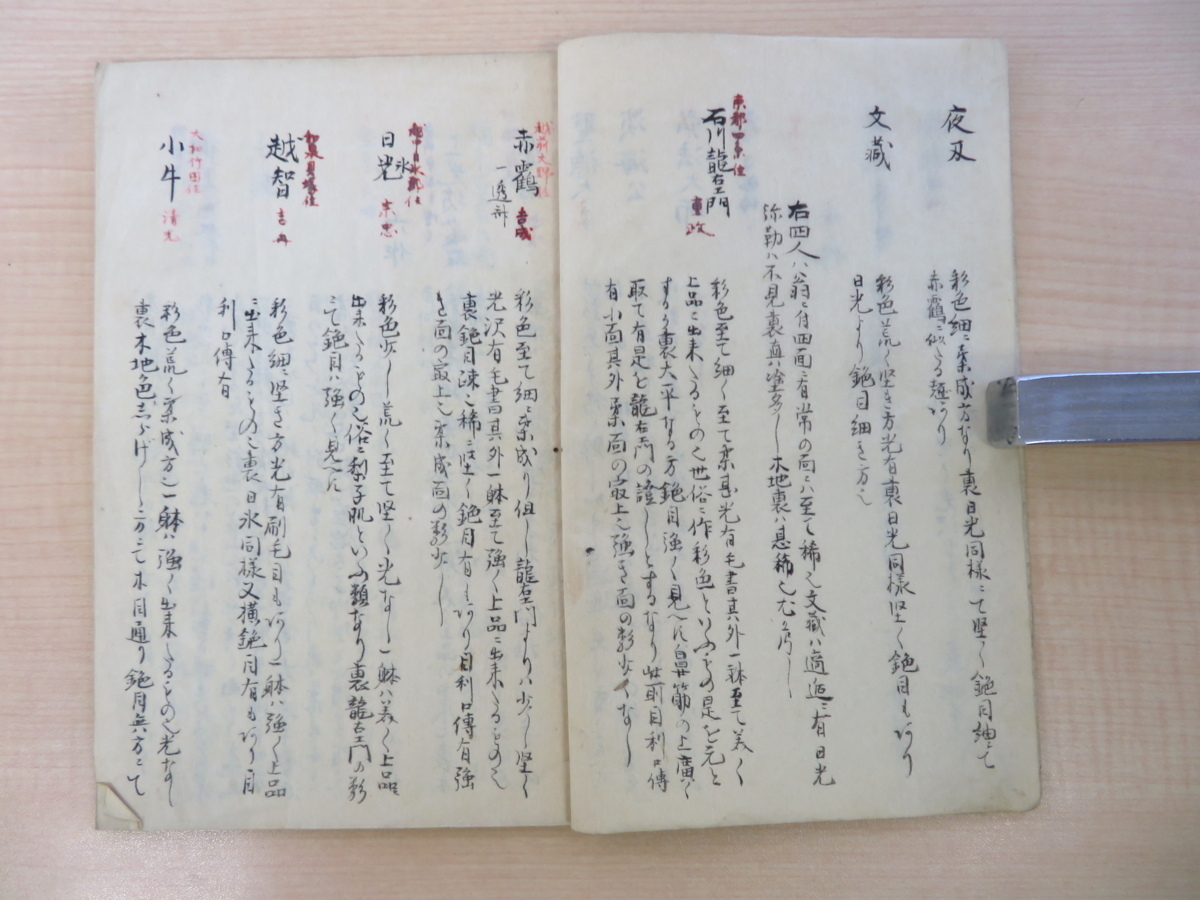 夜叉
彩色細ニ柔成方なり裏日光同様ニて堅く鉋目細ニて
赤鶴ニ似たる趣あり
文蔵
彩色荒く堅き方光有裏日光同様堅く鉋目もあり
日光より鉋目細き方也
右四人ハ翁ニ付四面ニ有常の面ニハ至て稀也文蔵ハ適ニ有日光
弥勒ハ不見裏真ハ塗多し木地裏ハ甚稀也
東都四条住
石川龍右エ門
重政
彩色至て細く至て柔甚光有毛書其外一躰至て美く
上品ニ出来たるもの也世俗ニ作彩色といふもの是を元と
する裏大平なる方鉋目強く見へ鼻筋の上廣く
取て有是を龍右エ門の證しとするなり此前目利口傳
有小面其外柔面の最上也強き面の類少くなし
越前大野住
赤鶴
吉成
一透斎
彩色至て細ニ柔成り但し龍右エ門よりハ少し堅く
光沢有毛書其外一躰至て強く上品ニ出来たるもの也
裏鉋目疎也稀ニ堅く鉋目有もあり目利口傳有強
き面の最上也柔成面の類少し
越中日氷郡住
日光
氷
宗忠
彩色少し荒く至て堅く光なし一躰ハ美く上品
出来たるもの也俗ニ梨子肌といふ類なり裏龍右エ門の類
ニて鉋目ハ強く見へに
和泉貝塚住
越智
吉舟
彩色細ニ堅き方光有刷毛目もあり一躰ハ強く上品
ニ出来たるもの也裏日氷同様又横鉋目有もあり目
利口傳有
大和竹田住
小牛
清光
彩色荒く柔成方也一躰ハ強く出来たるもの也光なし
裏木地色志らけし方ニて木目通り鉋目無方ニて